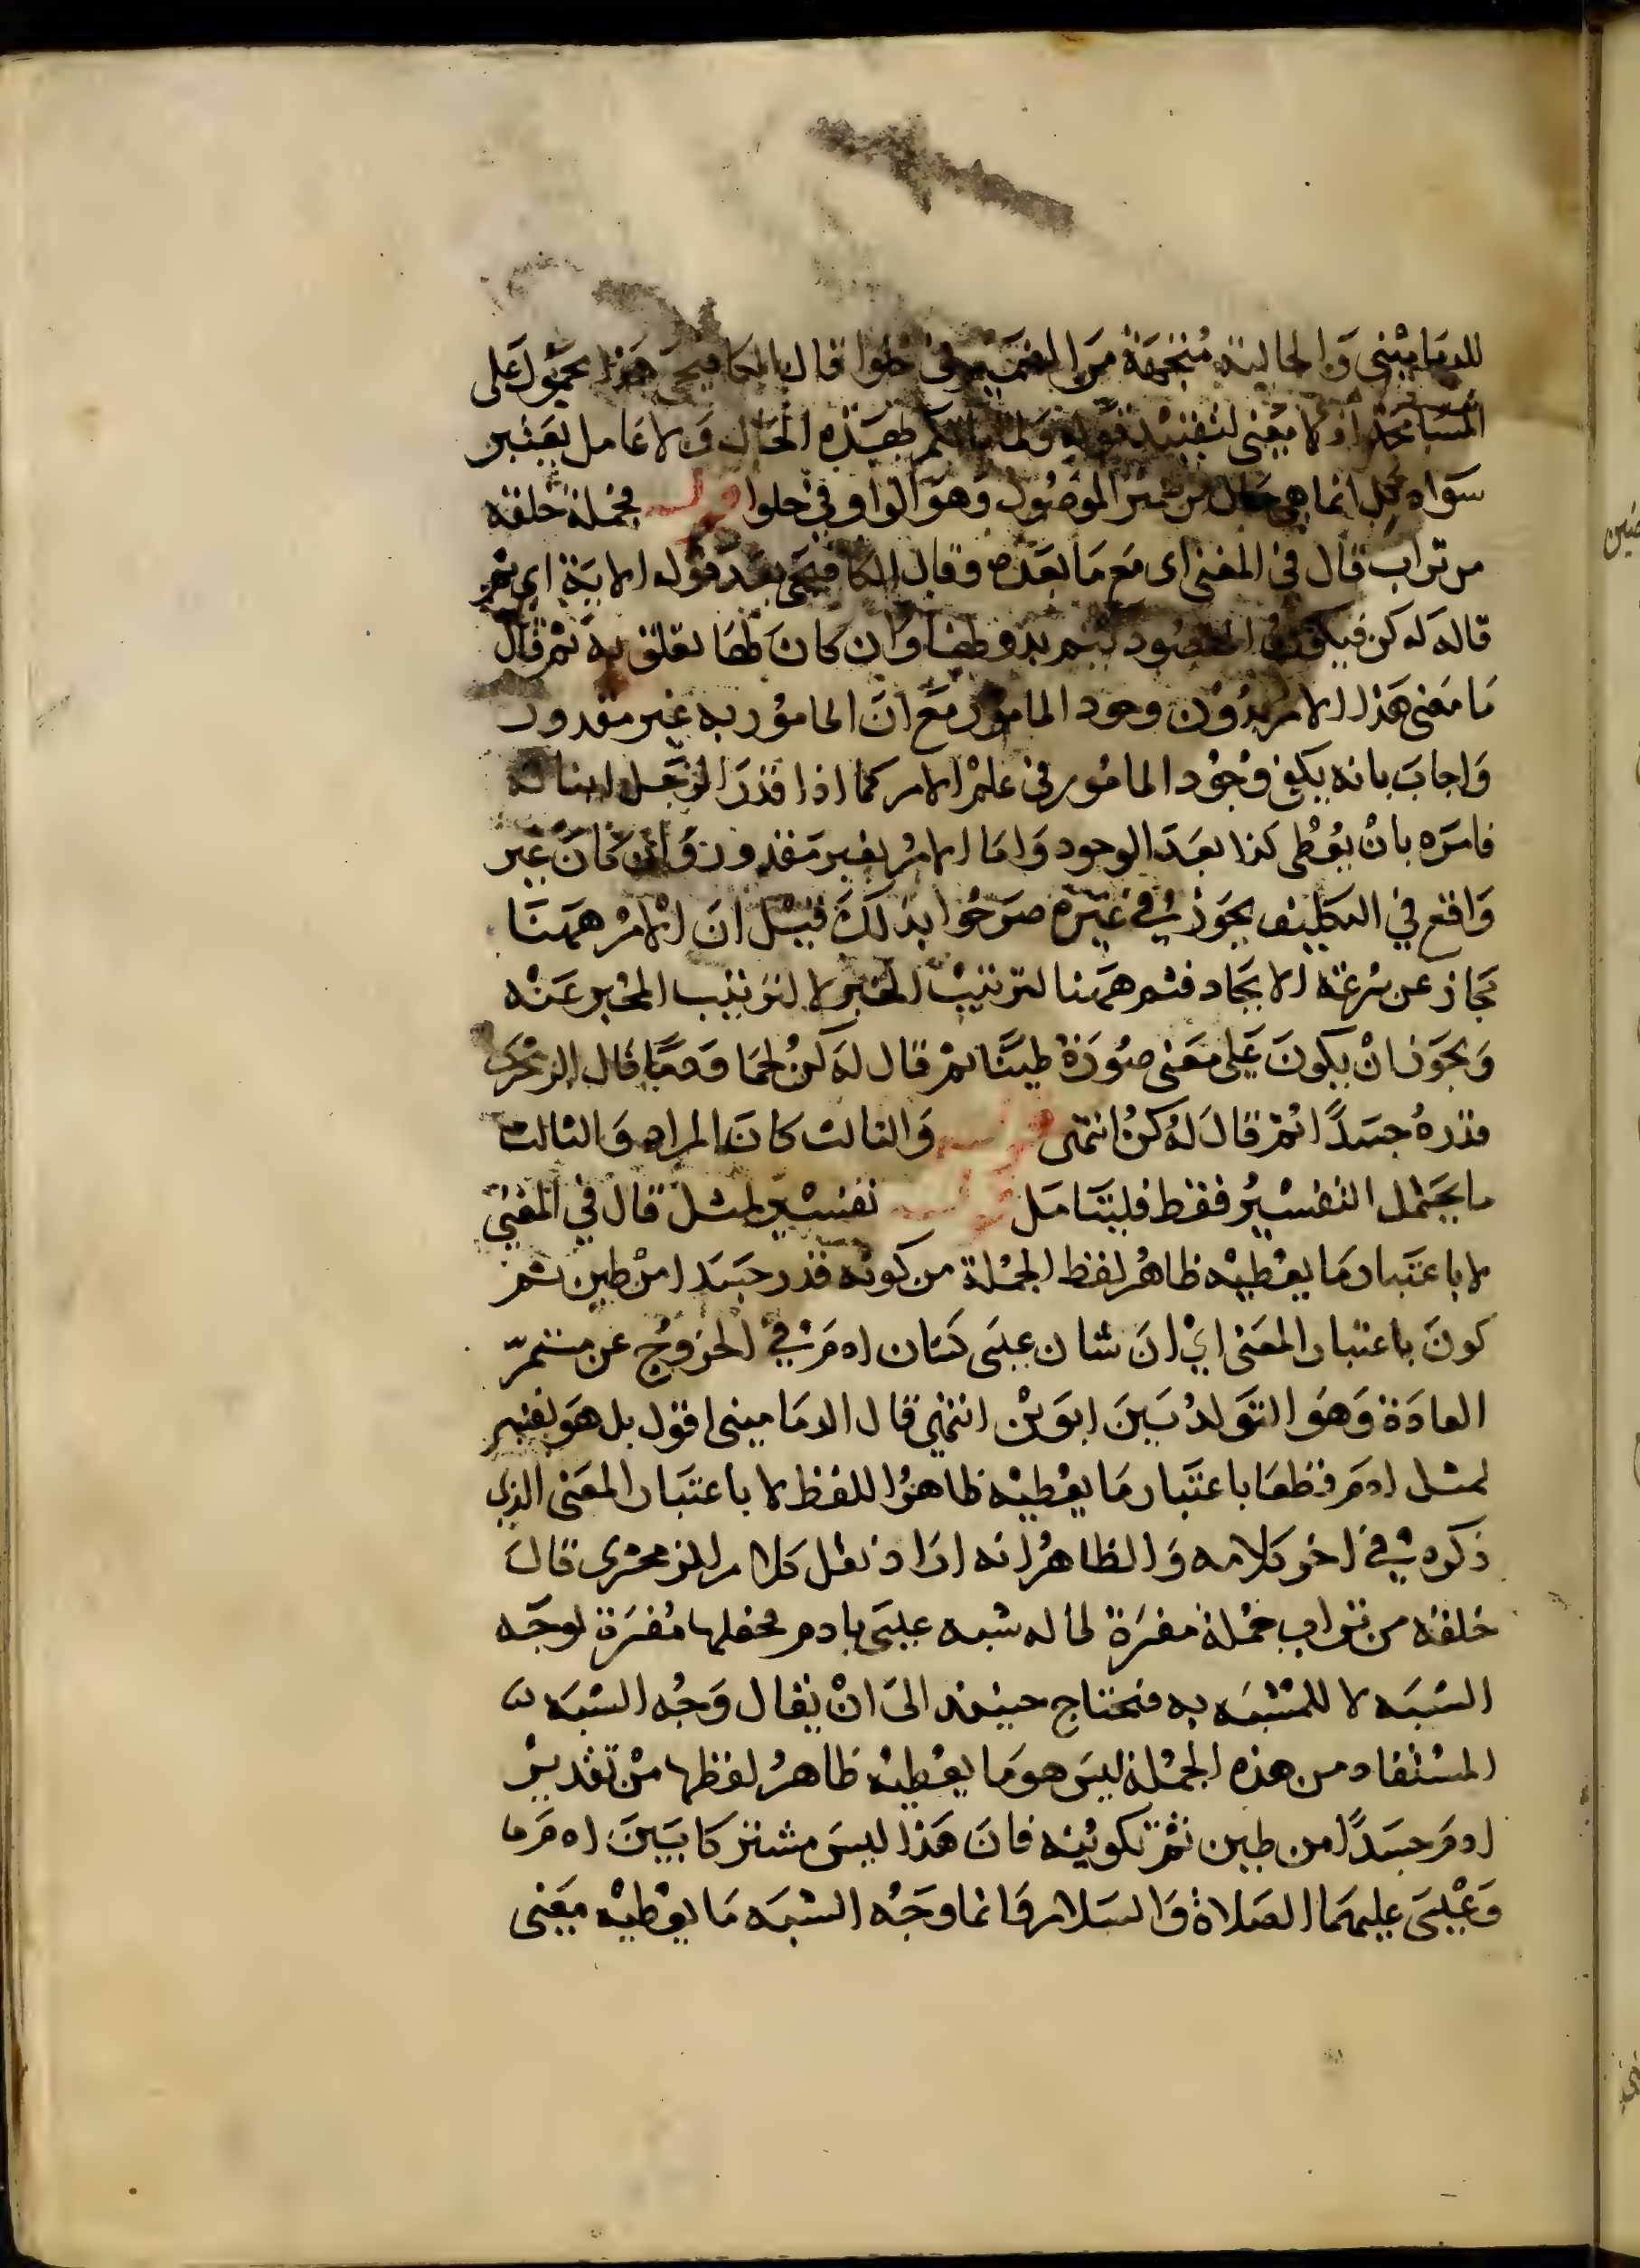 للدمامينى وَالحالية مُتجهَة مِنَ الضمَير فى خلوا قال الكافيجى هَذا محمُول عَلى
المسَامحة اذ لا مَعنى لتقييد قوله وَلما ياتكم بهَذه الحَال وَلا عَامل يعتبر
سوَاه بَل انما هى حَال من ضمير الموصُول وَهوَ الواو فى خلوا قوله فجملة خلقه
من تراب قال في المغنى اى مَع مَا بعَده وقال الكافيجى بعد قوله الاية اى ثم
قاله له كن فيكون المقصُود يتم بدونها وَان كانَ لها تعلق به ثم قال
مَا مَعنى هَذا الامر بدُون وجود المامُور مَع انَ المامُور به غير مقدور
وَاجابَ بانه يكفى وُجوُد المامُور فى علم الامر كما اذا قدرَ الرجل ابنا له
فامرَه بانْ يعُطى كذا بعَد الوجود وَاما الامرُ بغير مَقدور وَان كانَ غير
وَاقع في التكليف يجوَز في غيره صرحُوا بذلكَ قيل ان الامرُ ههنَا
مجَاز عن سُرعَة الايجَاد فثم ههنا لترتيبْ الخبر لا لترتيب المخبر عَنه
وَيجوَز انْ يكونَ عَلى مَعنى صوُرَة طينًا ثم قال لهَ كنْ لحمًا وَدمًا قال الزمخشرى
قدرهُ جسَدًا ثمَ قالَ لهُ كنْ انتهى قوله وَالثالث كانَ المراد وَالثالث
ما يحتمل التفسيرُ فقط فليتَامَل قوله تفسير لمثل قال في المغنى
لا باعتبار مَا يعْطيه ظاهرُ لفظ الجملة من كونه قدر جسَدا منْ طين ثم
كونَ باعتبار المعَنى ايْ انَ شان عيسَى كشان ادمَ في الخروُج عن مستمرّ
العادَة وَهوَ التوَلدُ بَينَ ابوَينْ انتهى قال الدمامينى اقول بل هوَ تفسير
لمثل ادمَ قطعَا باعتبَار مَا يعُطيه ظاهرُ اللفظ لا باعتبَار المعَنى الذى
ذكره في اخر كلامه وَالظاهرُ انه ارَاد نقل كلام الزمخشرى قالَ
خلقه من تراب جملة مفسَرَة لما له شبه عيسَى بادم فجعلها مُفسَرَة لوجَه
الشبَه لا للمشبَه به فتحتاج حينئذ الىَ انْ يقال وَجُه الشبَه
المستفاد من هذه الجملة ليسَ هوَ مَا يعْطيه ظاهرُ لفظها منْ تقدير
ادمَ جسَدًا من طين ثمّ تكوينه فانَ هَذا ليسَ مشتركا بَينَ ادمَ
وَعيسَى عليهمَا الصَلاة وَالسَلام وَانما وَجْه الشبَه مَا يعْطيه مَعنى